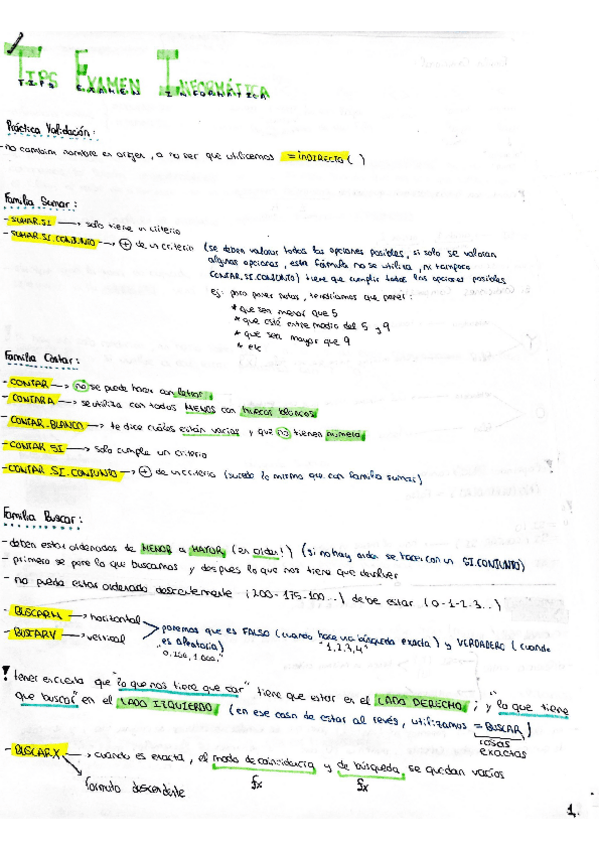 TIPS EXAMEN INFORMÁTICA
TIPS EXAMEN INFORMÁTICA
Práctica Validación:
- no cambiar nombre en origen, a no ser que utilicemos =INDIRECTO( )
Familia Sumar:
- SUMAR.SI → solo tiene un criterio
- SUMAR.SI.CONJUNTO → + de un criterio (se deben valorar todas las opciones posibles, si solo se valoran
algunas opciones, esta fórmula no se utiliza, ni tampoco
CONTAR.SI.CONJUNTO) tiene que cumplir todas las opciones posibles
ej: para poner notas, tendríamos que poner:
* que sea menor que 5
* que esté entre medio del 5 y 9
* que sea mayor que 9
* etc
Familia Contar:
- CONTAR → no se puede hacer con letras
- CONTARA → se utiliza con todos MENOS con huecos blancos
- CONTAR.BLANCO → te dice cuáles están vacías y que no tienen número
- CONTAR SI → solo cumple un criterio
- CONTAR SI.CONJUNTO → + de un criterio (sucede lo mismo que con familia sumar)
Familia Buscar:
- deben estar ordenados de MENOR a MAYOR (en orden!) (si no hay orden se hace con un SI.CONJUNTO)
- primero se pone lo que buscamos y después lo que nos tiene que devolver
- no puede estar ordenado descendentemente (200-175-100...) debe estar (0-1-2-3...)
- BUSCARH → horizontal
- BUSCARV → vertical
ponemos que es FALSO (cuando hace una búsqueda exacta) y VERDADERO (cuando
es aleatoria)
"1,2,3,4"
! tener en cuenta que "lo que nos tiene que dar" tiene que estar en el LADO DERECHO, y "lo que tiene
que buscar" en el LADO IZQUIERDO (en ese caso de estar al revés, utilizamos =BUSCAR)
cosas
exactas
- BUSCARX → cuando es exacta, el modo de coincidencia y de búsqueda, se quedan vacíos
formato descendente
fx
fx
1.